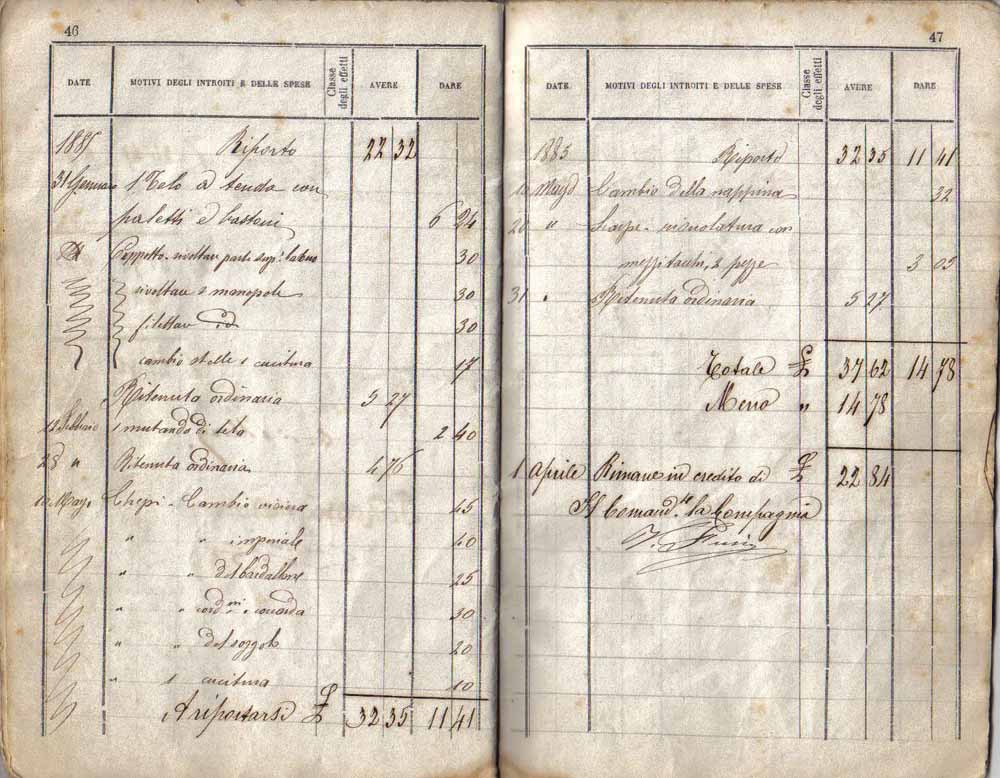 46
DATE MOTIVI DEGLI INTROITI E DELLE SPESE Classe degli effetti AVERE DARE
1885 Riporto 22 32
31 Gennaio 1 Telo a tenda con
paletti e bastoni 6 24
Cappotto rivoltare parte sup.
30
rivoltare 2 manopole 30
filettare id 30
cambio stelle e cucitura 17
Ritenuta ordinaria 5 27
Febbraio 1 mutande di tela 2 40
28 " Ritenuta ordinaria 4 76
10 Chepì - Cambio visiera 45
" " imperiale 40
" " del 25
" " e coccarda 30
" " del soggolo 20
" cucitura 10
A riportarsi £ 32 35 11 41
47
DATE MOTIVI DEGLI INTROITI E DELLE SPESE Classe degli effetti AVERE DARE
1885 Riporto 32 35 11 41
10 Cambio della nappina 32
20 " Scarpe - con
mezzi tacchi, 2 pezze 3 05
31 " Ritenuta ordinaria 5 27
Totale £ 37 62 14 78
Meno " 14 78
1 Aprile Rimane in credito di £ 22 84
Il Comand.te la Compagnia